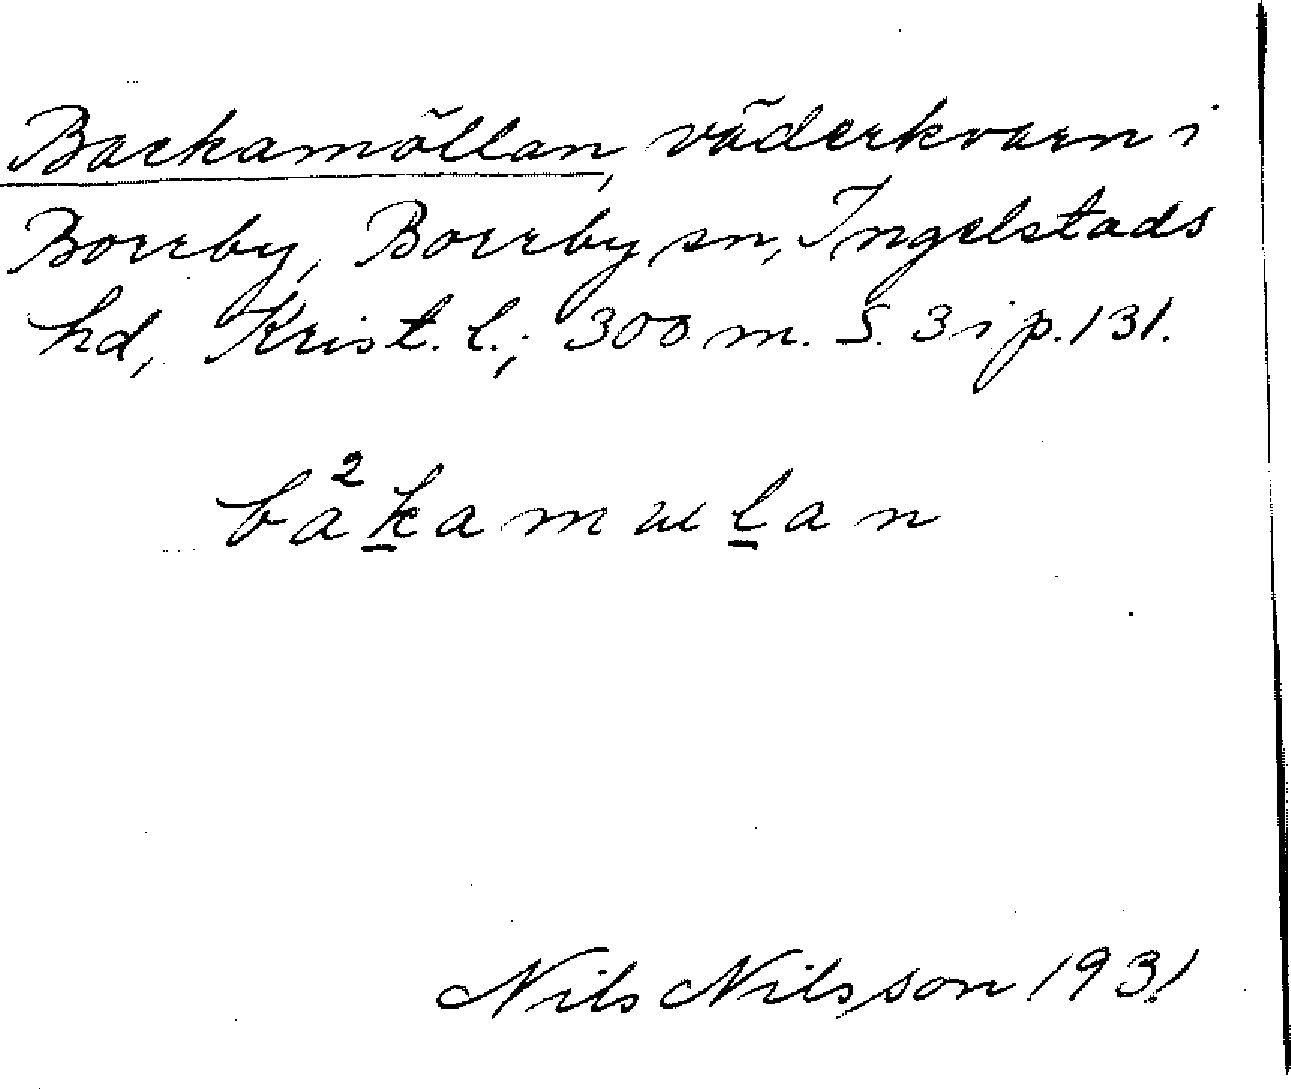 Backamöllan, väderkvarn i
Borrby, Borrby sn, Ingelstads
hd, Krist. l.; 300 m. S. 3 i p. 131.
ba²kamɯlan
Nils Nilsson 1931